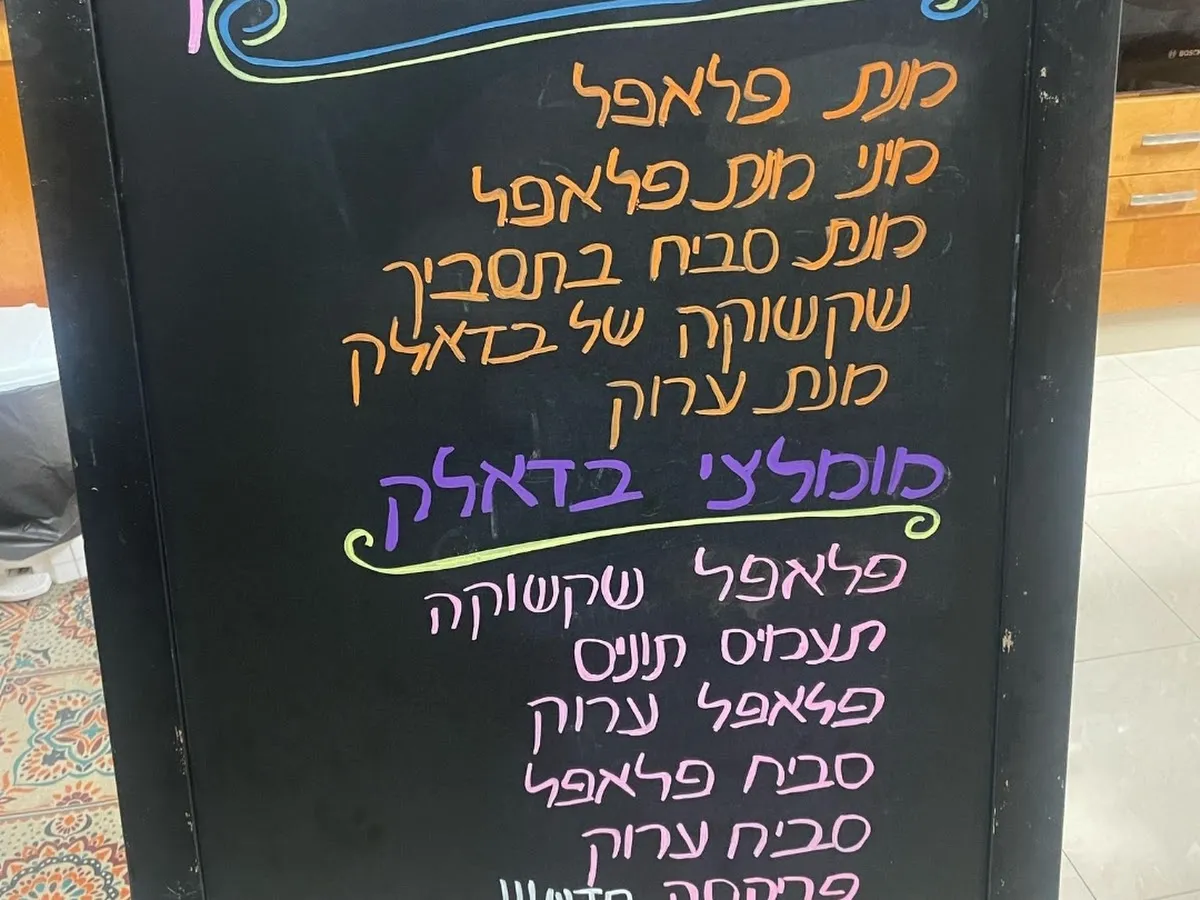 מנת פלאפל
מיני מנת פלאפל
מנת סביח בתסביך
שקשוקה של בדאלק
מנת ערוק
מומלצי בדאלק
פלאפל שקשוקה
תעמיס תוניס
פלאפל ערוק
סביח פלאפל
סביח ערוק
פריקסה חדש!!!
BOSCH